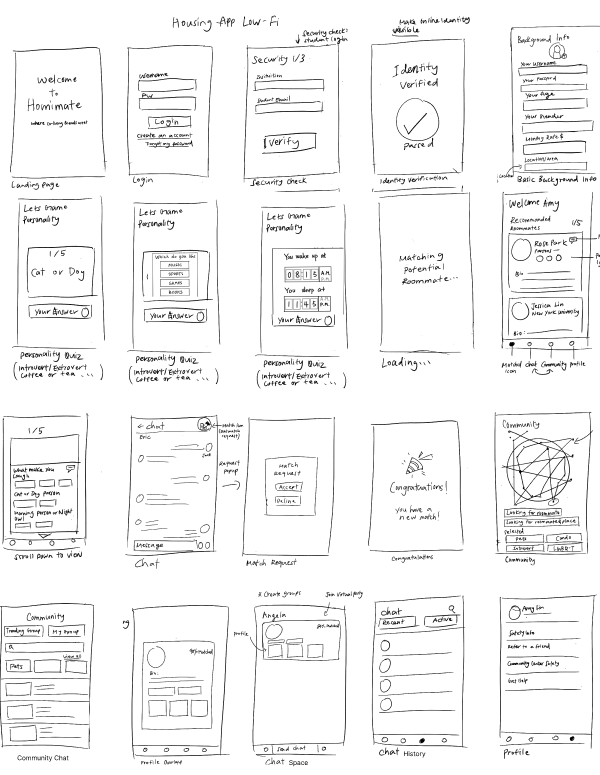 Housing App Low-Fi
Security check:
student login
Make Online Identity
visible
Welcome
To
Homimate
Landing Page
Username
PW
Login
Create an account
Login
Security 1/3
Institution
Student Email
Verify
Security Check
Identity
Verified
Passed
Identity Verification
Background Info
Your Username
Your Password
Your Age
Your Gender
Location/Area
Basic Background Info
Lets Game
Personality
1/5
Cat or Dog
Your Answer
Personality Quiz
(Introvert/Extrovert
Coffee or tea ... )
Lets Game
Personality
Which do you like
MUSIC
SPORTS
GAMES
BOOKS
Your Answer
Personality Quiz
(Introvert/Extrovert
Coffee or tea ... )
Lets Game
Personality
You wake up at
0 8 1 5 A.M.
You sleep at
1 1 4 5 A.M.
Your Answer
Personality Quiz
(Introvert/Extrovert
Coffee or tea ... )
Matching
Potential
Roommate...
Loading...
Welcome Amy
Recommended
Roommates 1/5
Rose Park
Bio
Jessica Lin
New York University
Bio:
Matched chat Community profile
icon
1/5
What make you
laugh
Cat or Dog person
Morning person or Night
owl
Scroll Down to view
← chat
Eric
Message
Chat
Request
popup
Match
Request
Accept
Decline
Match Request
Congratulations!
you have a
new match!
Congratulations
Community
Looking for roommate
Looking for roommate&place
Selected
Pets
Condo
Introvert
LGBT
Community
Community
Trending Group
My Group
View all
Pets
Community Chat
Bio:
Profile Overlap
& Create groups
Join Virtual party
Angela
profile
Send chat
Chat Space
chat
Recent
Active
Chat History
Amy Lin
Safety Info
Refer to a friend
Community Center Safety
Get Help
Profile